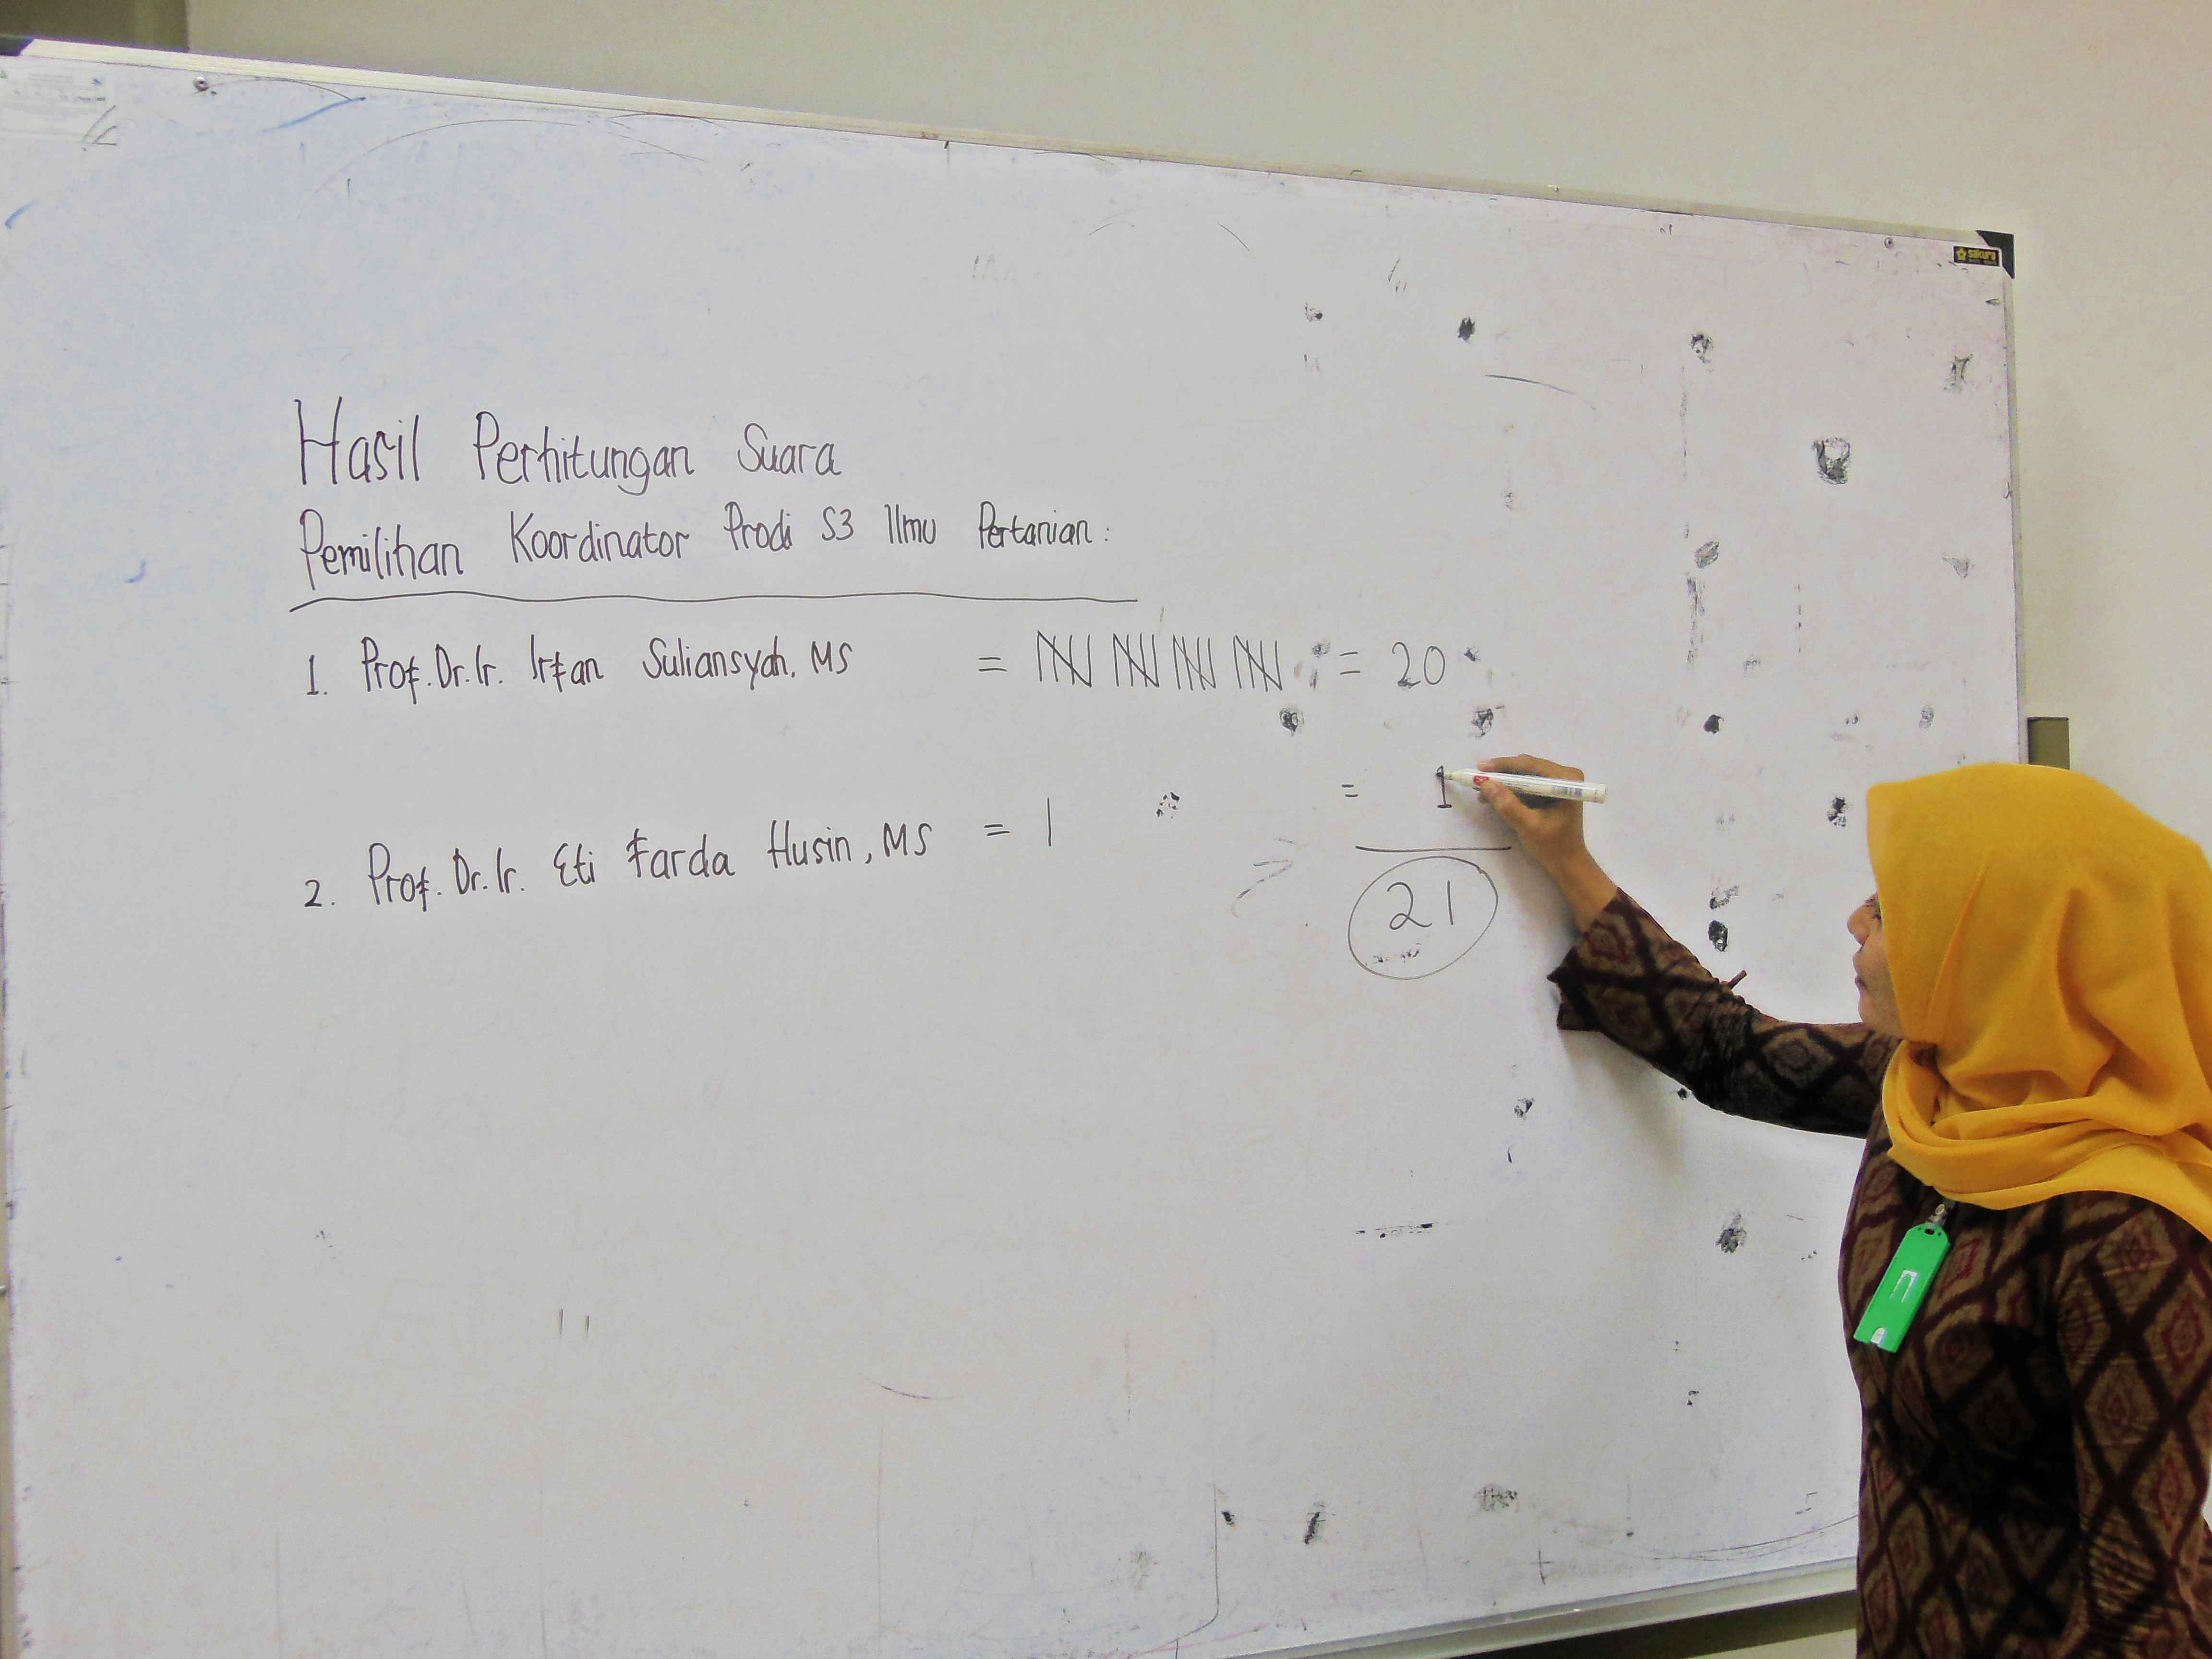 Hasil Perhitungan Suara
Pemilihan Koordinator Prodi S3 Ilmu Pertanian :
1. Prof. Dr. Ir. Irfan Suliansyah, MS = 𝍸 𝍸 𝍸 𝍸 = 20
2. Prof. Dr. Ir. Eti Farda Husin, MS = | = 1
21
sakura